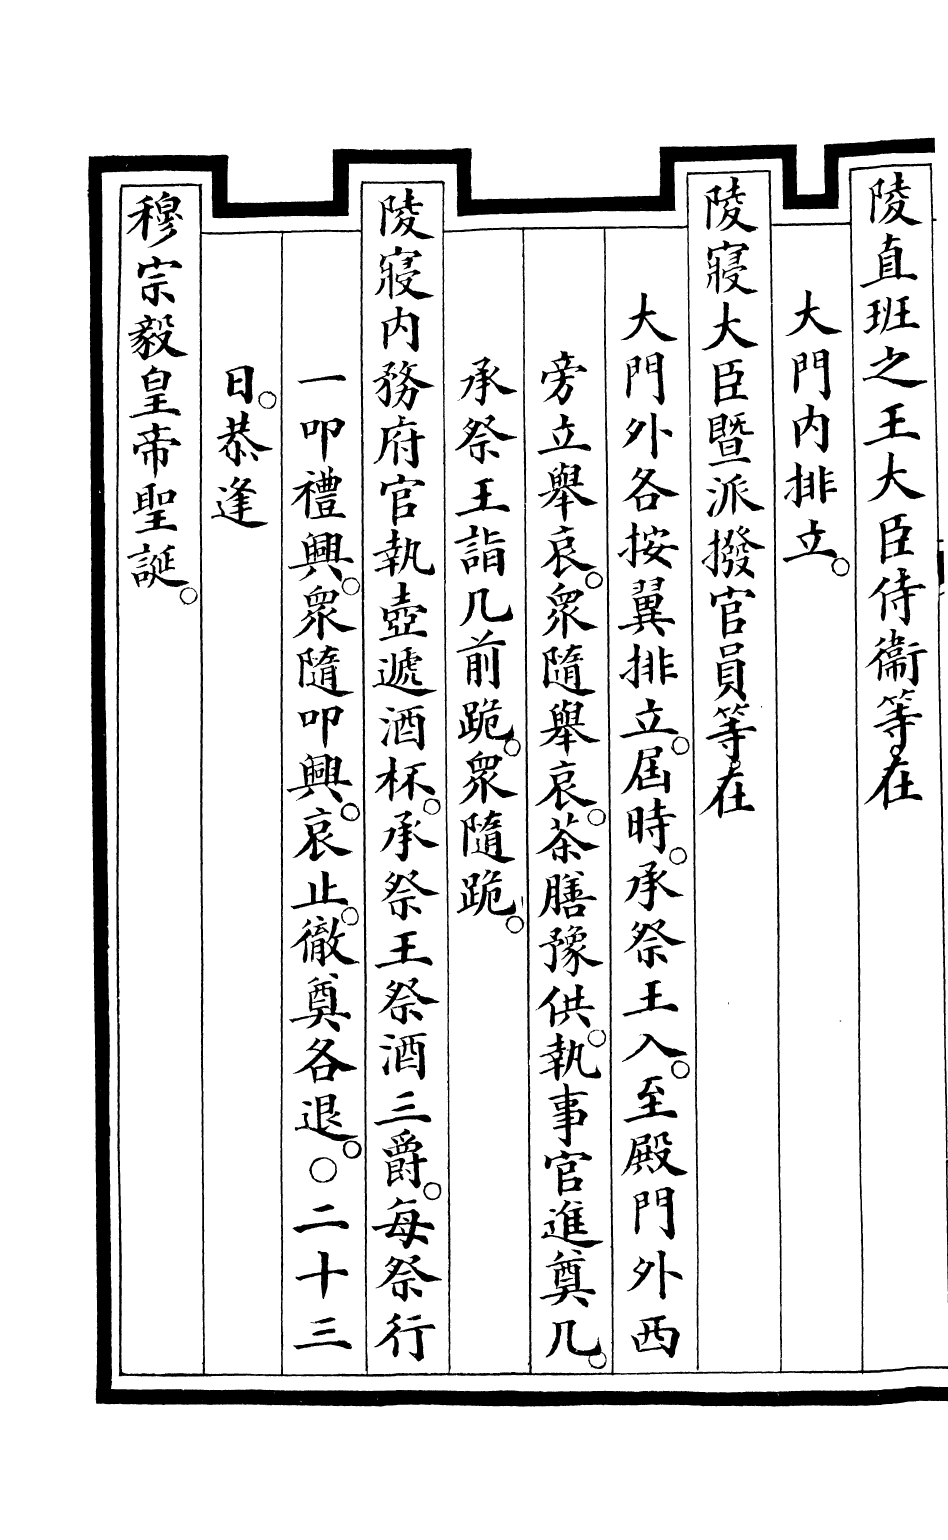 陵直班之王大臣侍衞等。在
大門內排立。
陵寢大臣暨派撥官員等。在
大門外各按翼排立。屆時。承祭王入。至殿門外西
旁立舉哀。衆隨舉哀。茶膳豫供。執事官進奠几。
承祭王詣几前跪。衆隨跪。
陵寢內務府官執壺遞酒杯。承祭王祭酒三爵。每祭行
一叩禮興。衆隨叩興。哀止。徹奠各退。○二十三
日。恭逢
穆宗毅皇帝聖誕。